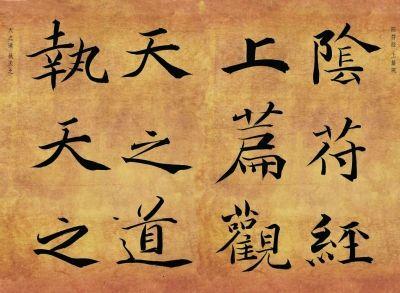 陰符經
上篇觀
天之道
執天之